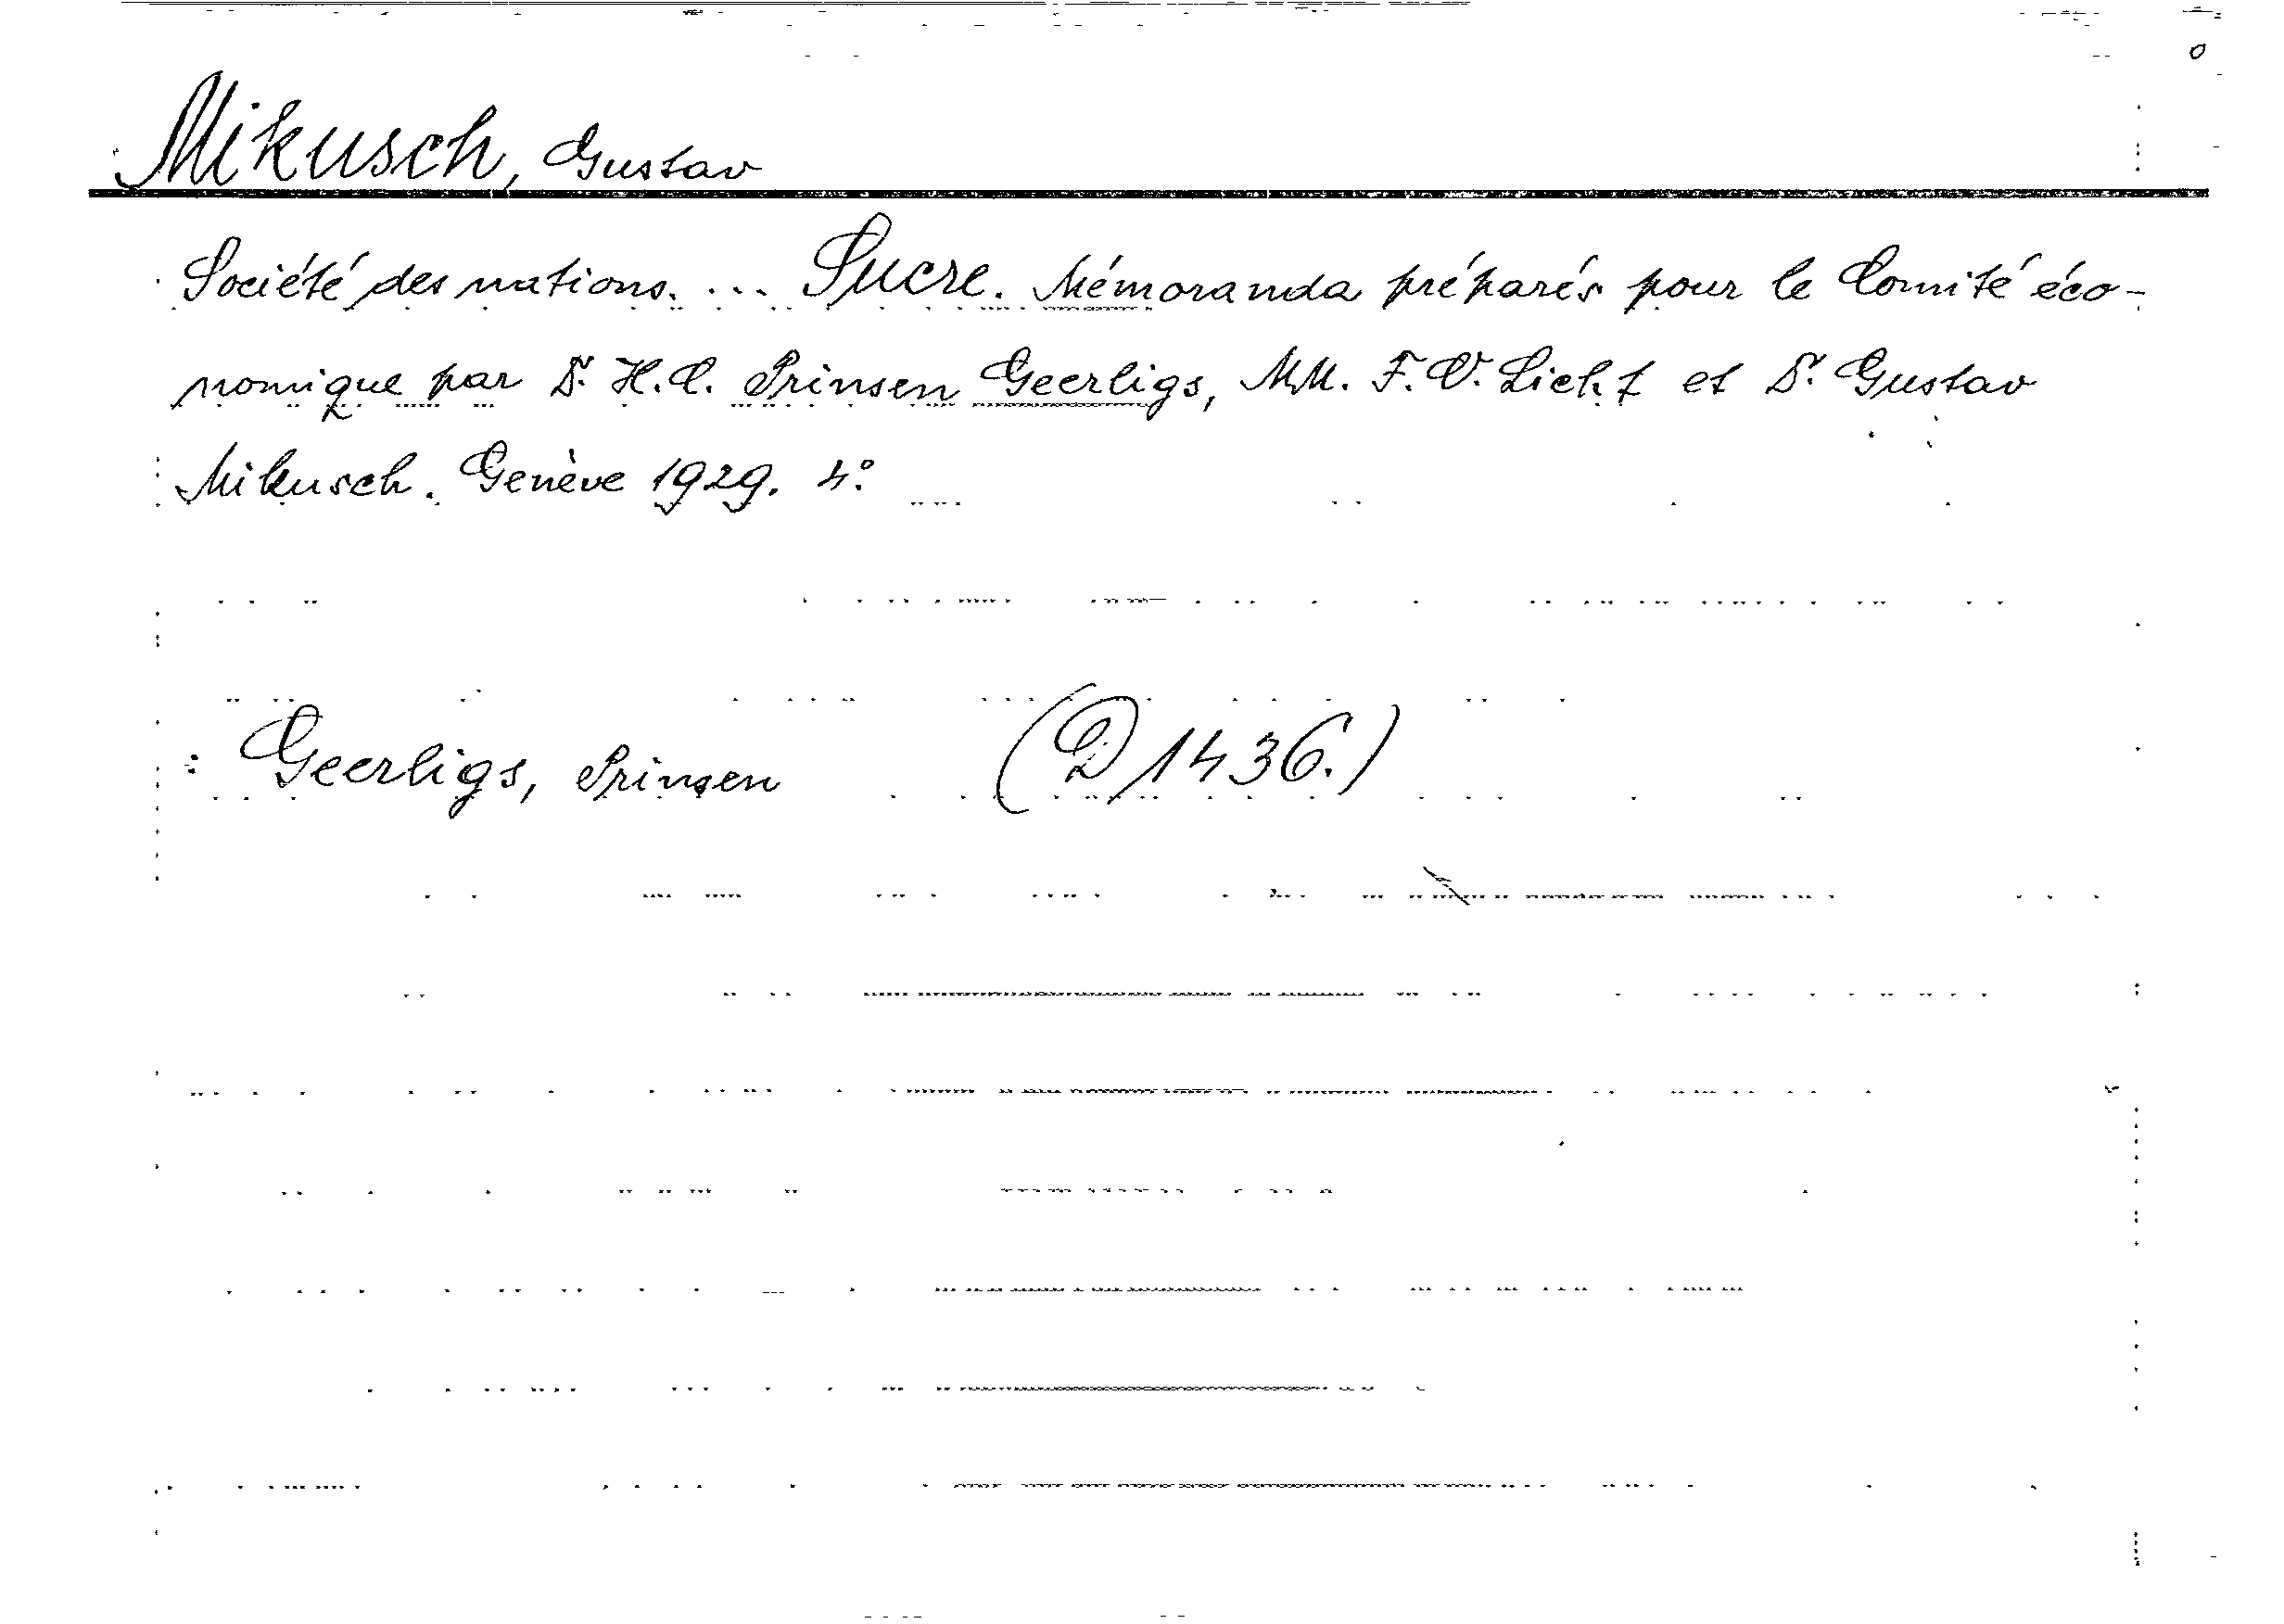 Mikusch, Gustav
Société des nations. ... Sucre. Mémoranda préparés pour le Comité éco-
nomique par Dr. H.C. Prinsen Geerligs, MM. F.O. Licht et Dr. Gustav
Mikusch. Genève 1929. 4°
: Geerligs, Prinsen (D 1436.)